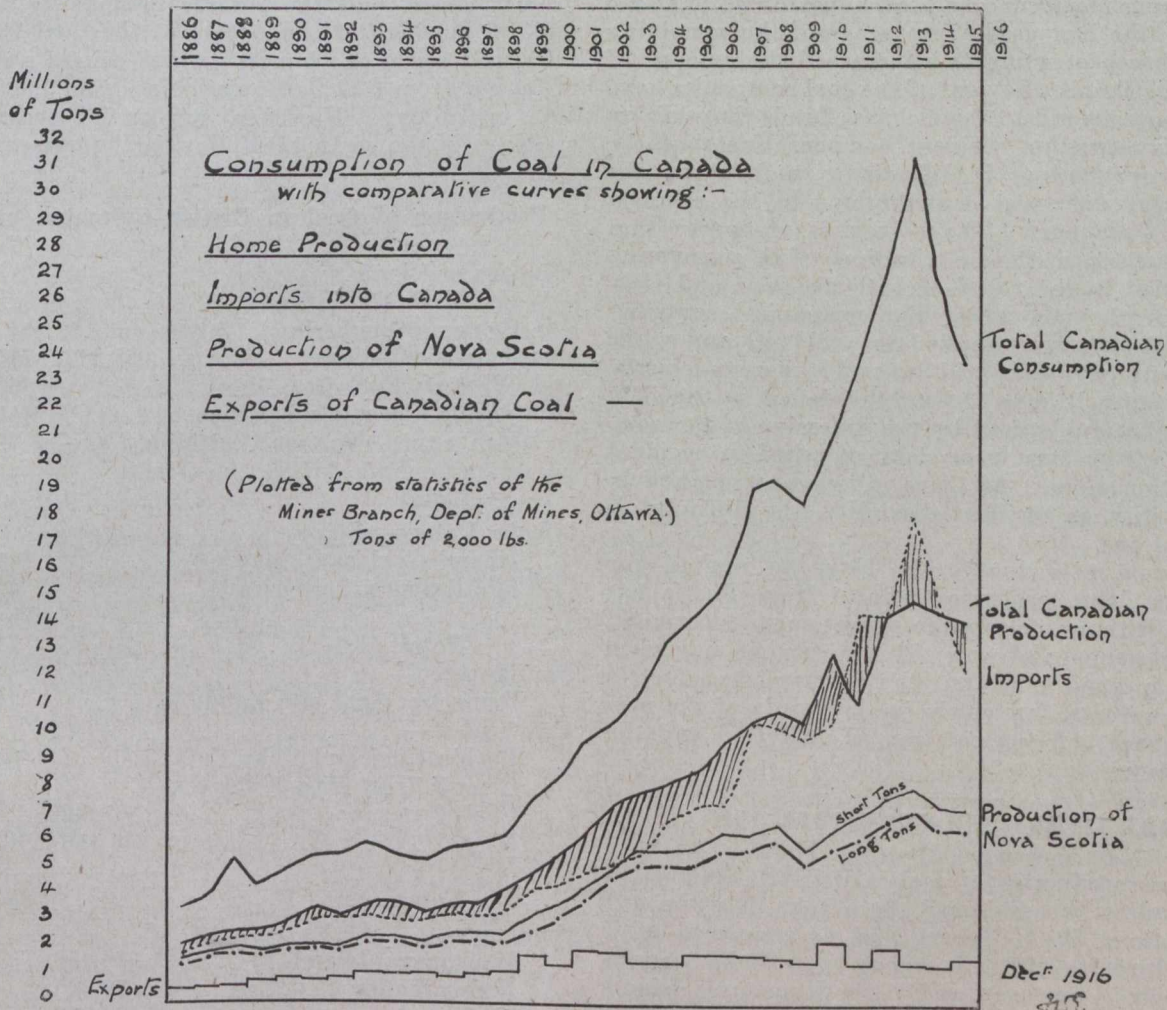 1886 1887 1888 1889 1890 1891 1892 1893 1894 1895 1896 1897 1898 1899 1900 1901 1902 1903 1904 1905 1906 1907 1908 1909 1910 1911 1912 1913 1914 1915 1916
Millions
of Tons
32
31
30
29
28
27
26
25
24
23
22
21
20
19
18
17
16
15
14
13
12
11
10
9
8
7
6
5
4
3
2
1
0
Consumption of Coal in Canada
with comparative curves showing:-
Home Production
Imports into Canada
Production of Nova Scotia
Exports of Canadian Coal —
(Plotted from statistics of the
Mines Branch, Dept. of Mines, Ottawa.)
Tons of 2,000 lbs.
Total Canadian
Consumption
Total Canadian
Production
Imports
Short Tons
Long Tons
Production of
Nova Scotia
Exports
Decr 1916